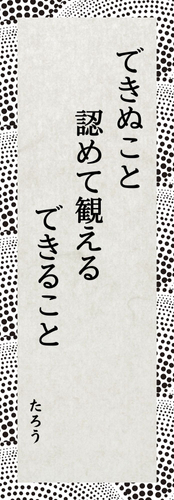 できぬこと
認めて観える
できること
たろう